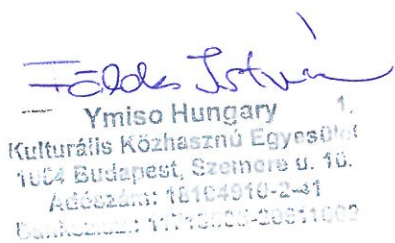 Földes István
Ymiso Hungary 1.
Kulturális Közhasznú Egyesület
1054 Budapest, Szemere u. 10.
Adószám: 18104910-2-41